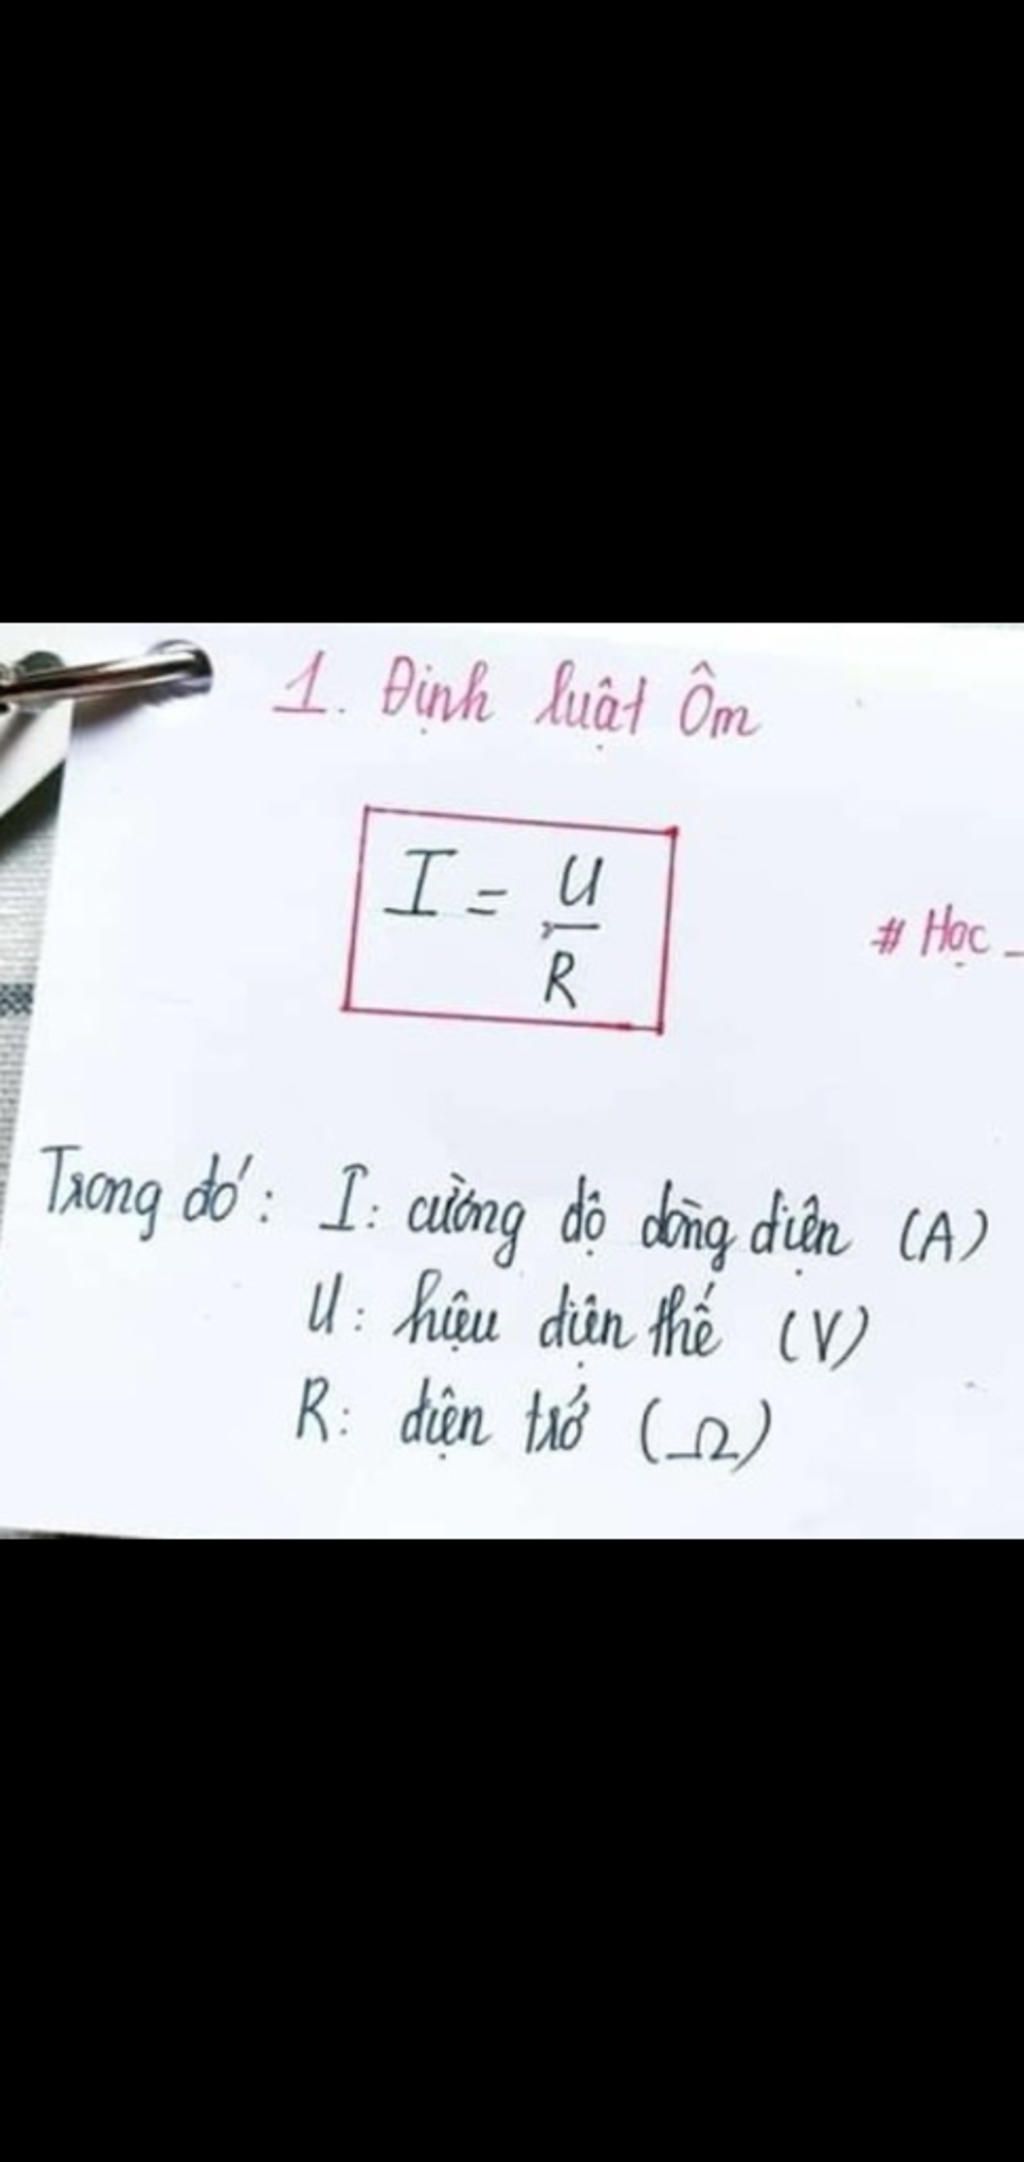 1. Định luật Ôm
I = U
R
# Học _
Trong đó: I: cường độ dòng điện (A)
U: hiệu điện thế (V)
R: điện trở (Ω)